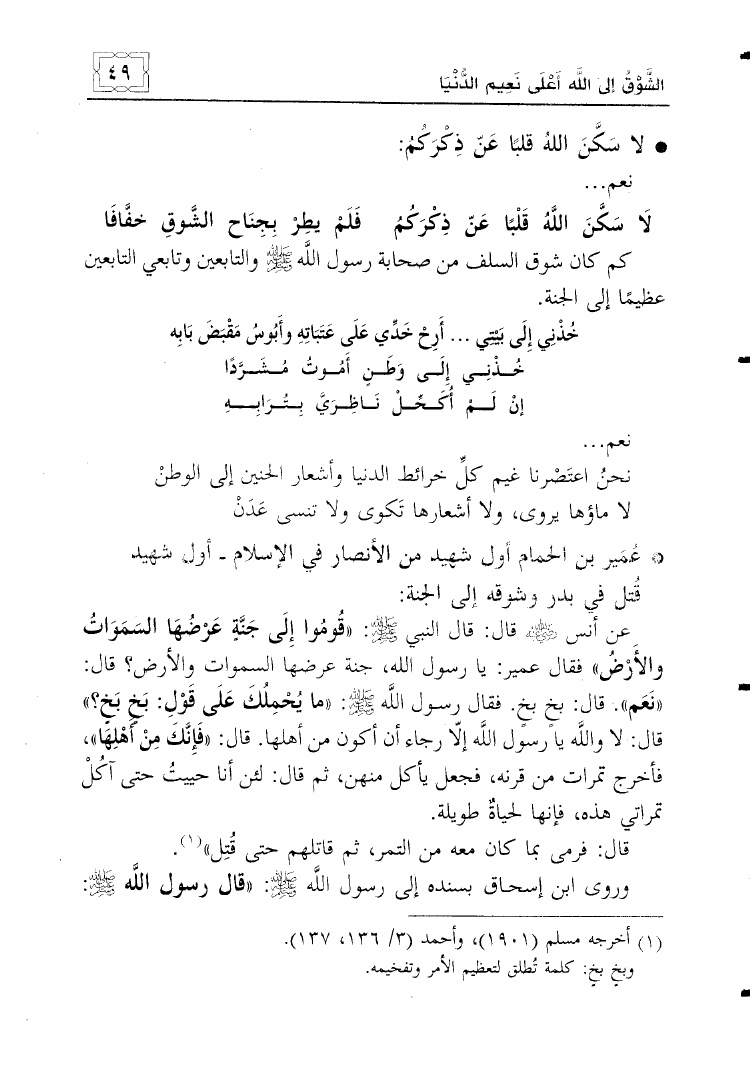 الشَّوْقُ إلى اللَّه أَعْلَى نَعِيم الدُّنْيَا
٤٩
● لا سَكَّنَ اللهُ قلبًا عَنّ ذِكْرَكُمُ:
نعم...
لَا سَكَّنَ اللَّهُ قَلْبًا عَنّ ذِكْرَكُمُ فَلَمْ يطِرْ بِجِنَاح الشَّوقِ خفَّافَا
كم كان شوق السلف من صحابة رسول اللَّه ﷺ والتابعين وتابعي التابعين
عظيمًا إلى الجنة.
خُذْنِي إِلَى بَيْتِي ... أَرِحْ خَدِّي عَلَى عَتَبَاتِهِ وأَبُوسُ مَقْبَضَ بَابِه
خُـذْنِـي إِلَـى وَطَـنٍ أَمُـوتُ مُـشَـرَّدًا
إنْ لَـمْ أُكَـحِّـلْ نَـاظِـرَيَّ بِـتُـرَابِـهِ
نعم...
نحنُ اعتَصْرنا غيم كلِّ خرائط الدنيا وأشعار الحنين إلى الوطنْ
لا ماؤها يروى، ولا أشعارها تَكوى ولا تنسى عَدَنْ
* عُمَير بن الحمام أول شهيد من الأنصار في الإسلام ـ أول شهيد
قُتل في بدر وشوقه إلى الجنة:
عن أنس رضي الله عنه قال: قال النبي ﷺ: «قُومُوا إِلَى جَنَّةٍ عَرْضُهَا السَّمَوَاتُ
والأَرْضُ» فقال عمير: يا رسول الله، جنة عرضها السموات والأرض؟ قال:
«نَعَم». قال: بخٍ بخٍ. فقال رسول اللَّه ﷺ: «ما يُحْمِلُكَ عَلَى قَوْلِ: بَخٍ بَخٍ؟»
قال: لا واللَّه يا رسول اللَّه إلّا رجاء أن أكون من أهلها. قال: «فَإِنَّكَ مِنْ أَهْلِهَا»،
فأخرج تمرات من قرنه، فجعل يأكل منهن، ثم قال: لئن أنا حييتُ حتى آكُلْ
تمراتي هذه، فإنها لحياةٌ طويلة.
قال: فرمى بما كان معه من التمر، ثم قاتلهم حتى قُتِل»(١).
وروى ابن إسحاق بسنده إلى رسول اللَّه ﷺ: «قال رسول اللَّه ﷺ:
(١) أخرجه مسلم (١٩٠١)، وأحمد (٣/ ١٣٦، ١٣٧).
وبخٍ بخٍ: كلمة تُطلق لتعظيم الأمر وتفخيمه.